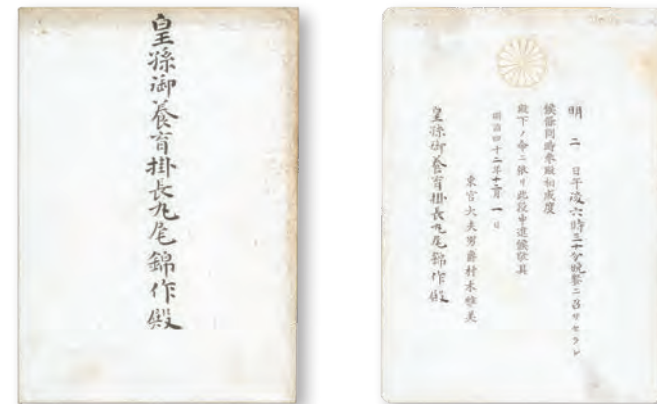 皇孫御養育掛長丸尾錦作殿
明二日午後六時三十分晩餐ニ召サセラレ
候條同時参殿相成度
殿下ノ命ニ依リ此段申進候敬具
明治四十二年十二月一日
東宮大夫男爵村木雅美
皇孫御養育掛長丸尾錦作殿